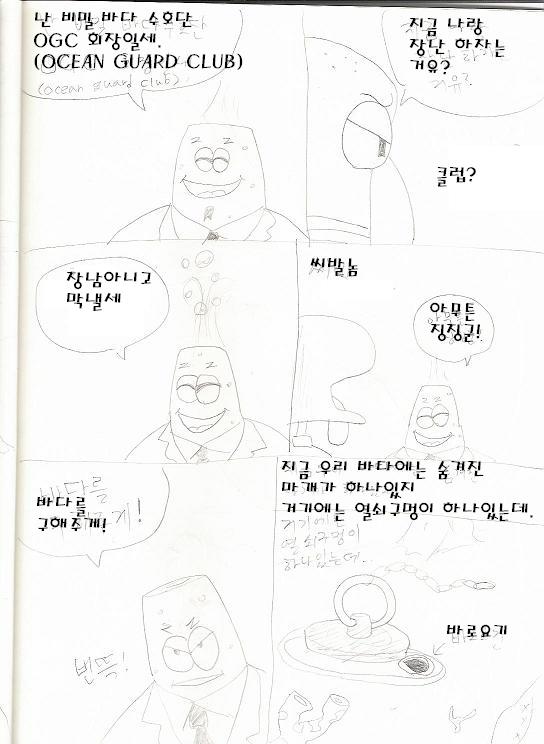 난 비밀 바다 수호단
OGC 회장일세.
(OCEAN GUARD CLUB)
(ocean guard club)
지금 나랑
장난 하자는
거유?
거유?
클럽?
장남아니고
막낼세
씨발놈
아무튼
징징군!
바다를
바다를
구해주게!
번뜩!
지금 우리 바다에는 숨겨진
마개가 하나있지
거기에는 열쇠구멍이 하나있는데.
거기에는
열쇠구멍이
하나있는데..
바로요기